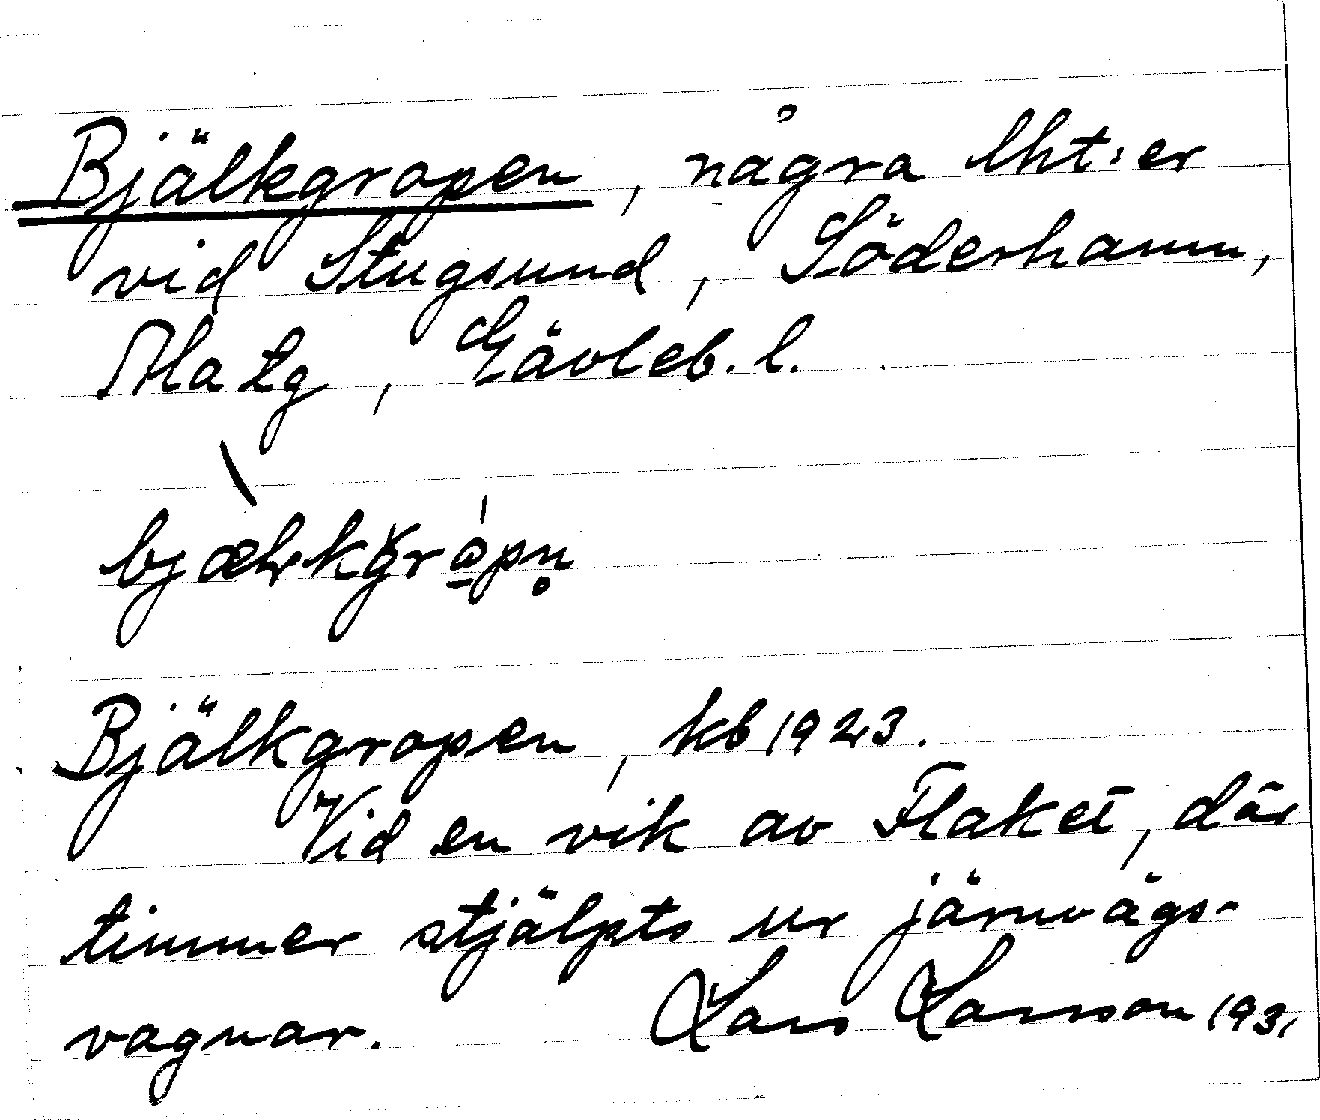 Bjälkgropen, några lht:er
vid Stugsund, Söderhamn,
Ala tg, Gävleb. l.
Bjälkgropen, kb 1923.
Vid en vik av Flaket, där
timmer stjälpts ur järnvägs-
vagnar. Lars Larsson 1931